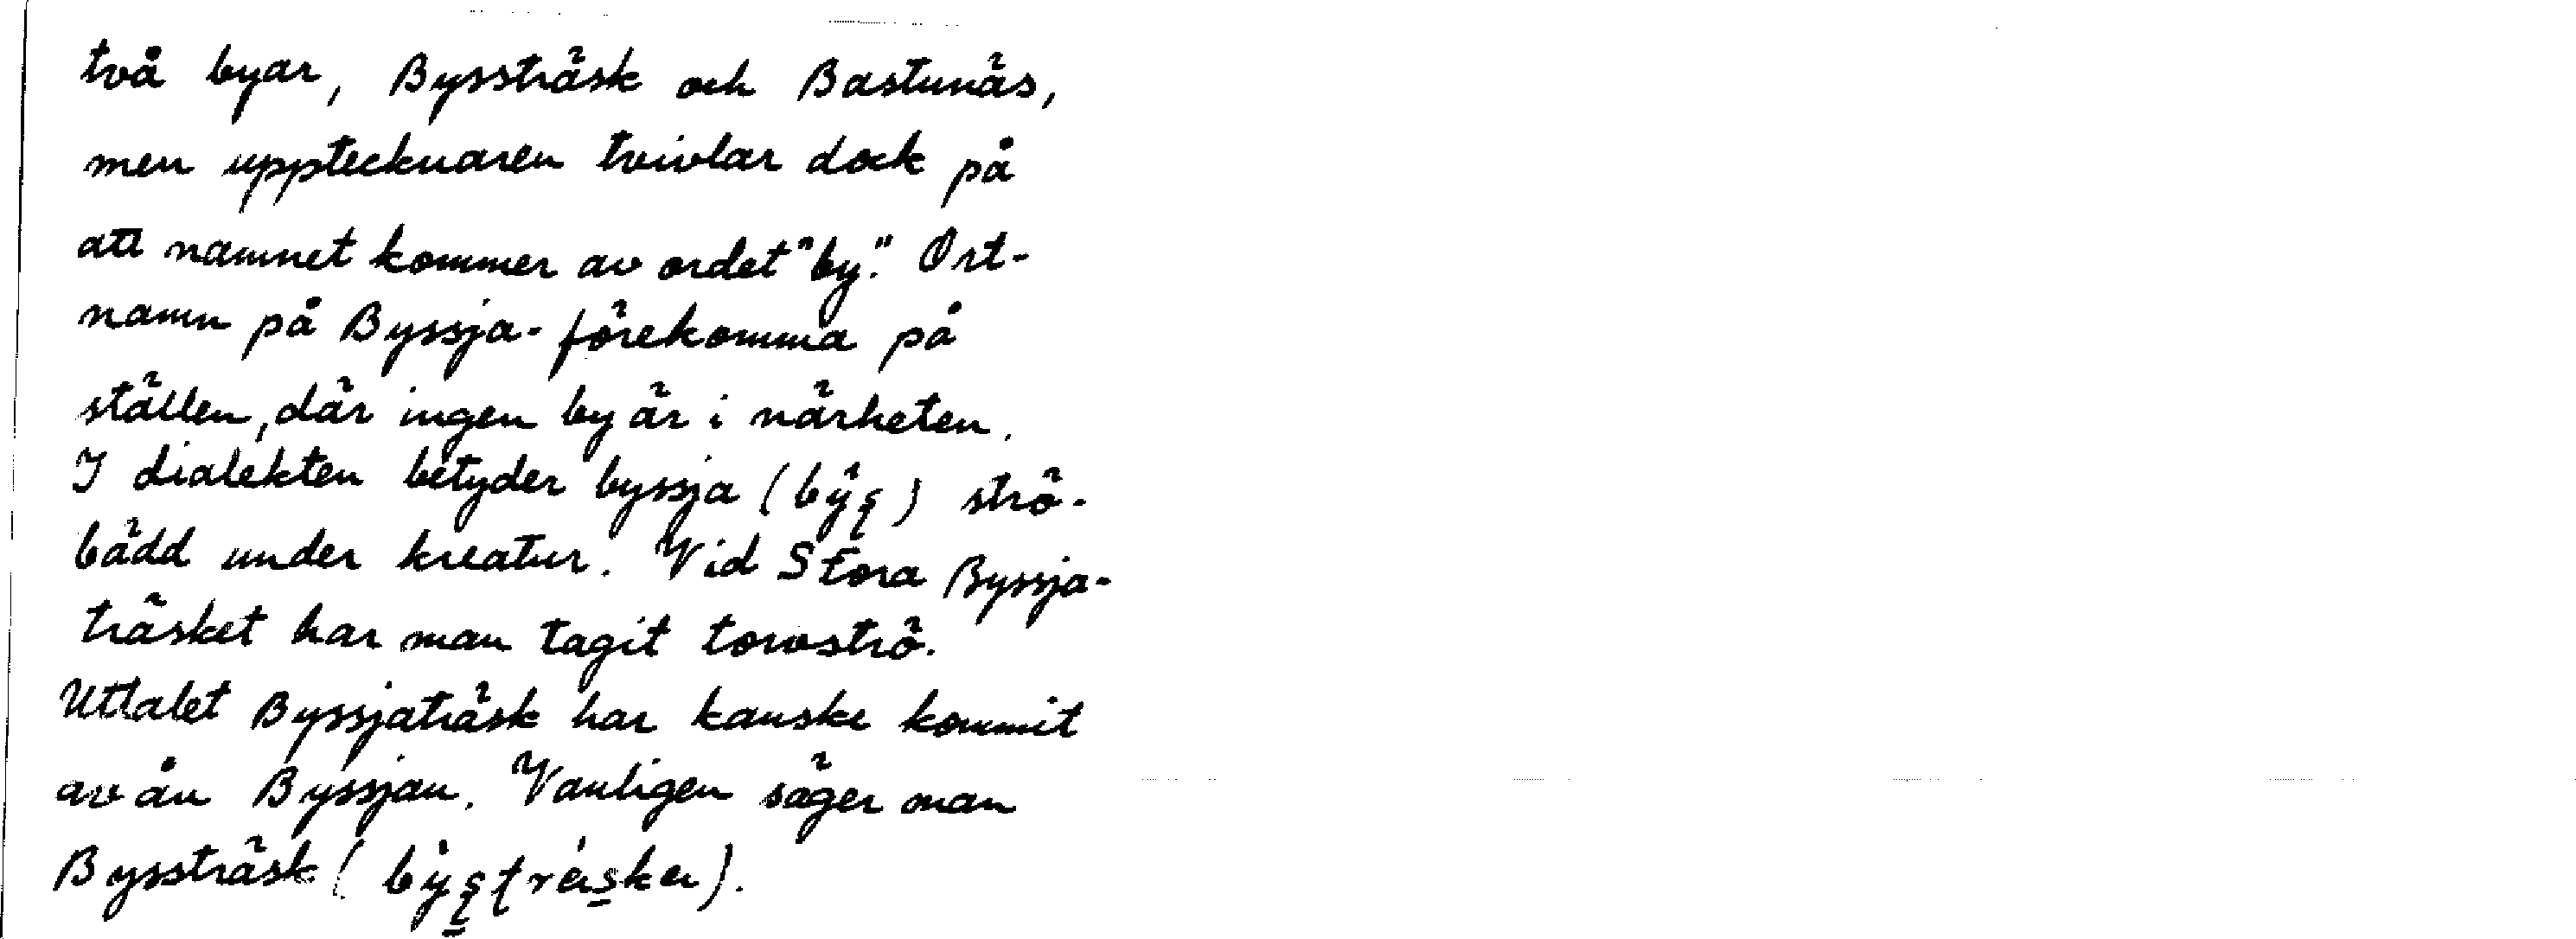 två byar, Byssträsk och Bastunäs,
men upptecknaren tvivlar dock på
att namnet kommer av ordet "by". Ort-
namn på Byssja- förekomma på
ställen, där ingen by är i närheten.
I dialekten betyder byssja ( ) strö-
bädd under kreatur. Vid Stora Byssja-
träsket har man tagit torvströ.
Uttalet Byssjaträsk har kanske kommit
av ån Byssjan. Vanligen säger man
Byssträsk ( ).